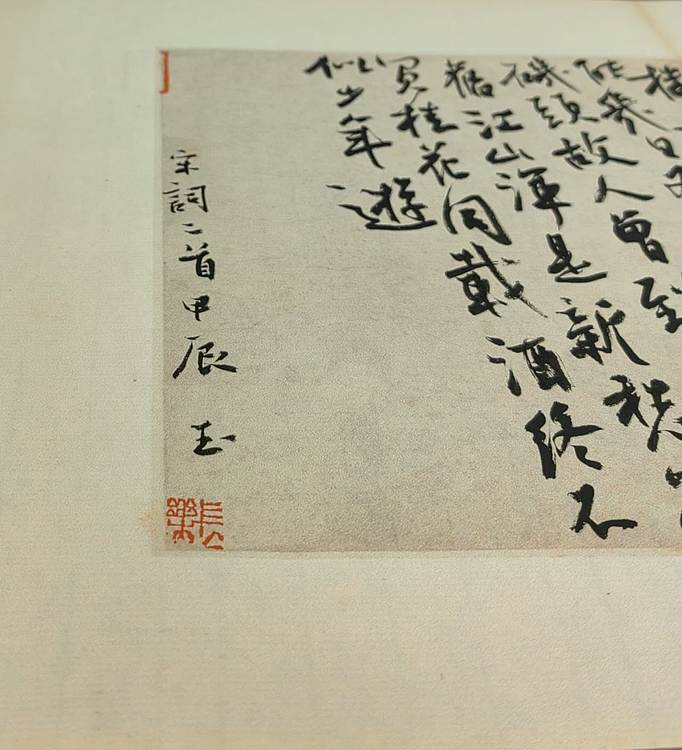 能幾日
磯頭故人曾到
舊江山渾是新愁
買桂花同載酒終不
似少年遊
宋詞二首甲辰 玉
長樂